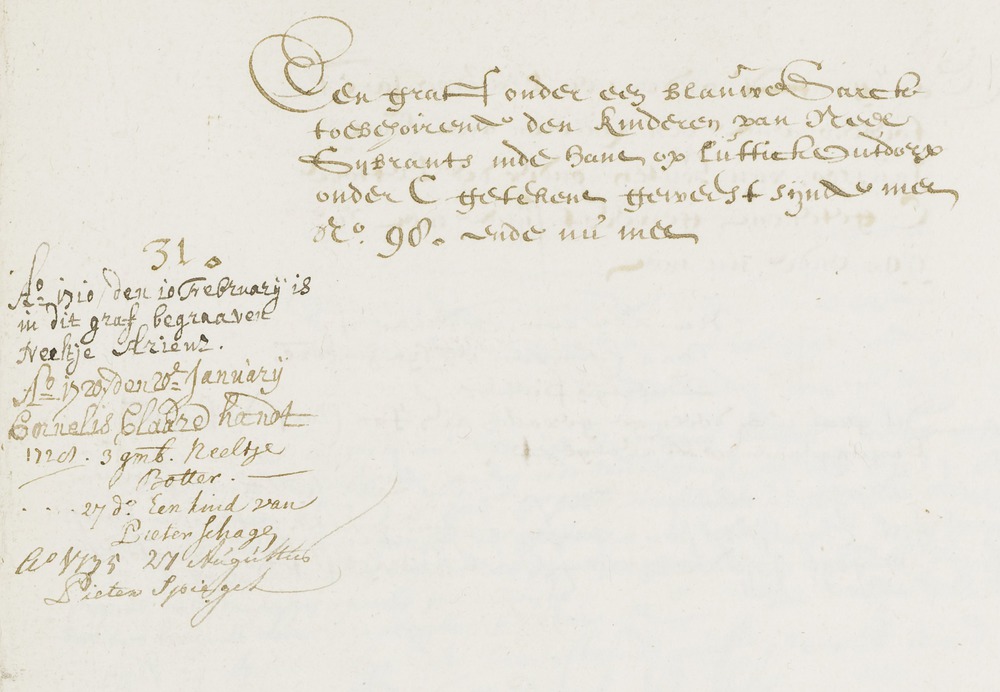 Een graff onder een blauwe Sarck
toebehoirende den kinderen van Neel
Sybrants inde hane op Luttickoutdorp
onder C getekent geweest sijnde met
No. 98. ende nu met
31.
Ao 1710 / den 10 February is
in dit graf begraaven
Neeltje Ariens.
Ao 1720 / den 20e January
Cornelis Claase handt
1728. 3 gmb. Neeltje
Botter.
27 do Een kind van
Pieter Schage
Ao 1735 27 Augustus
Pieter Spiegel